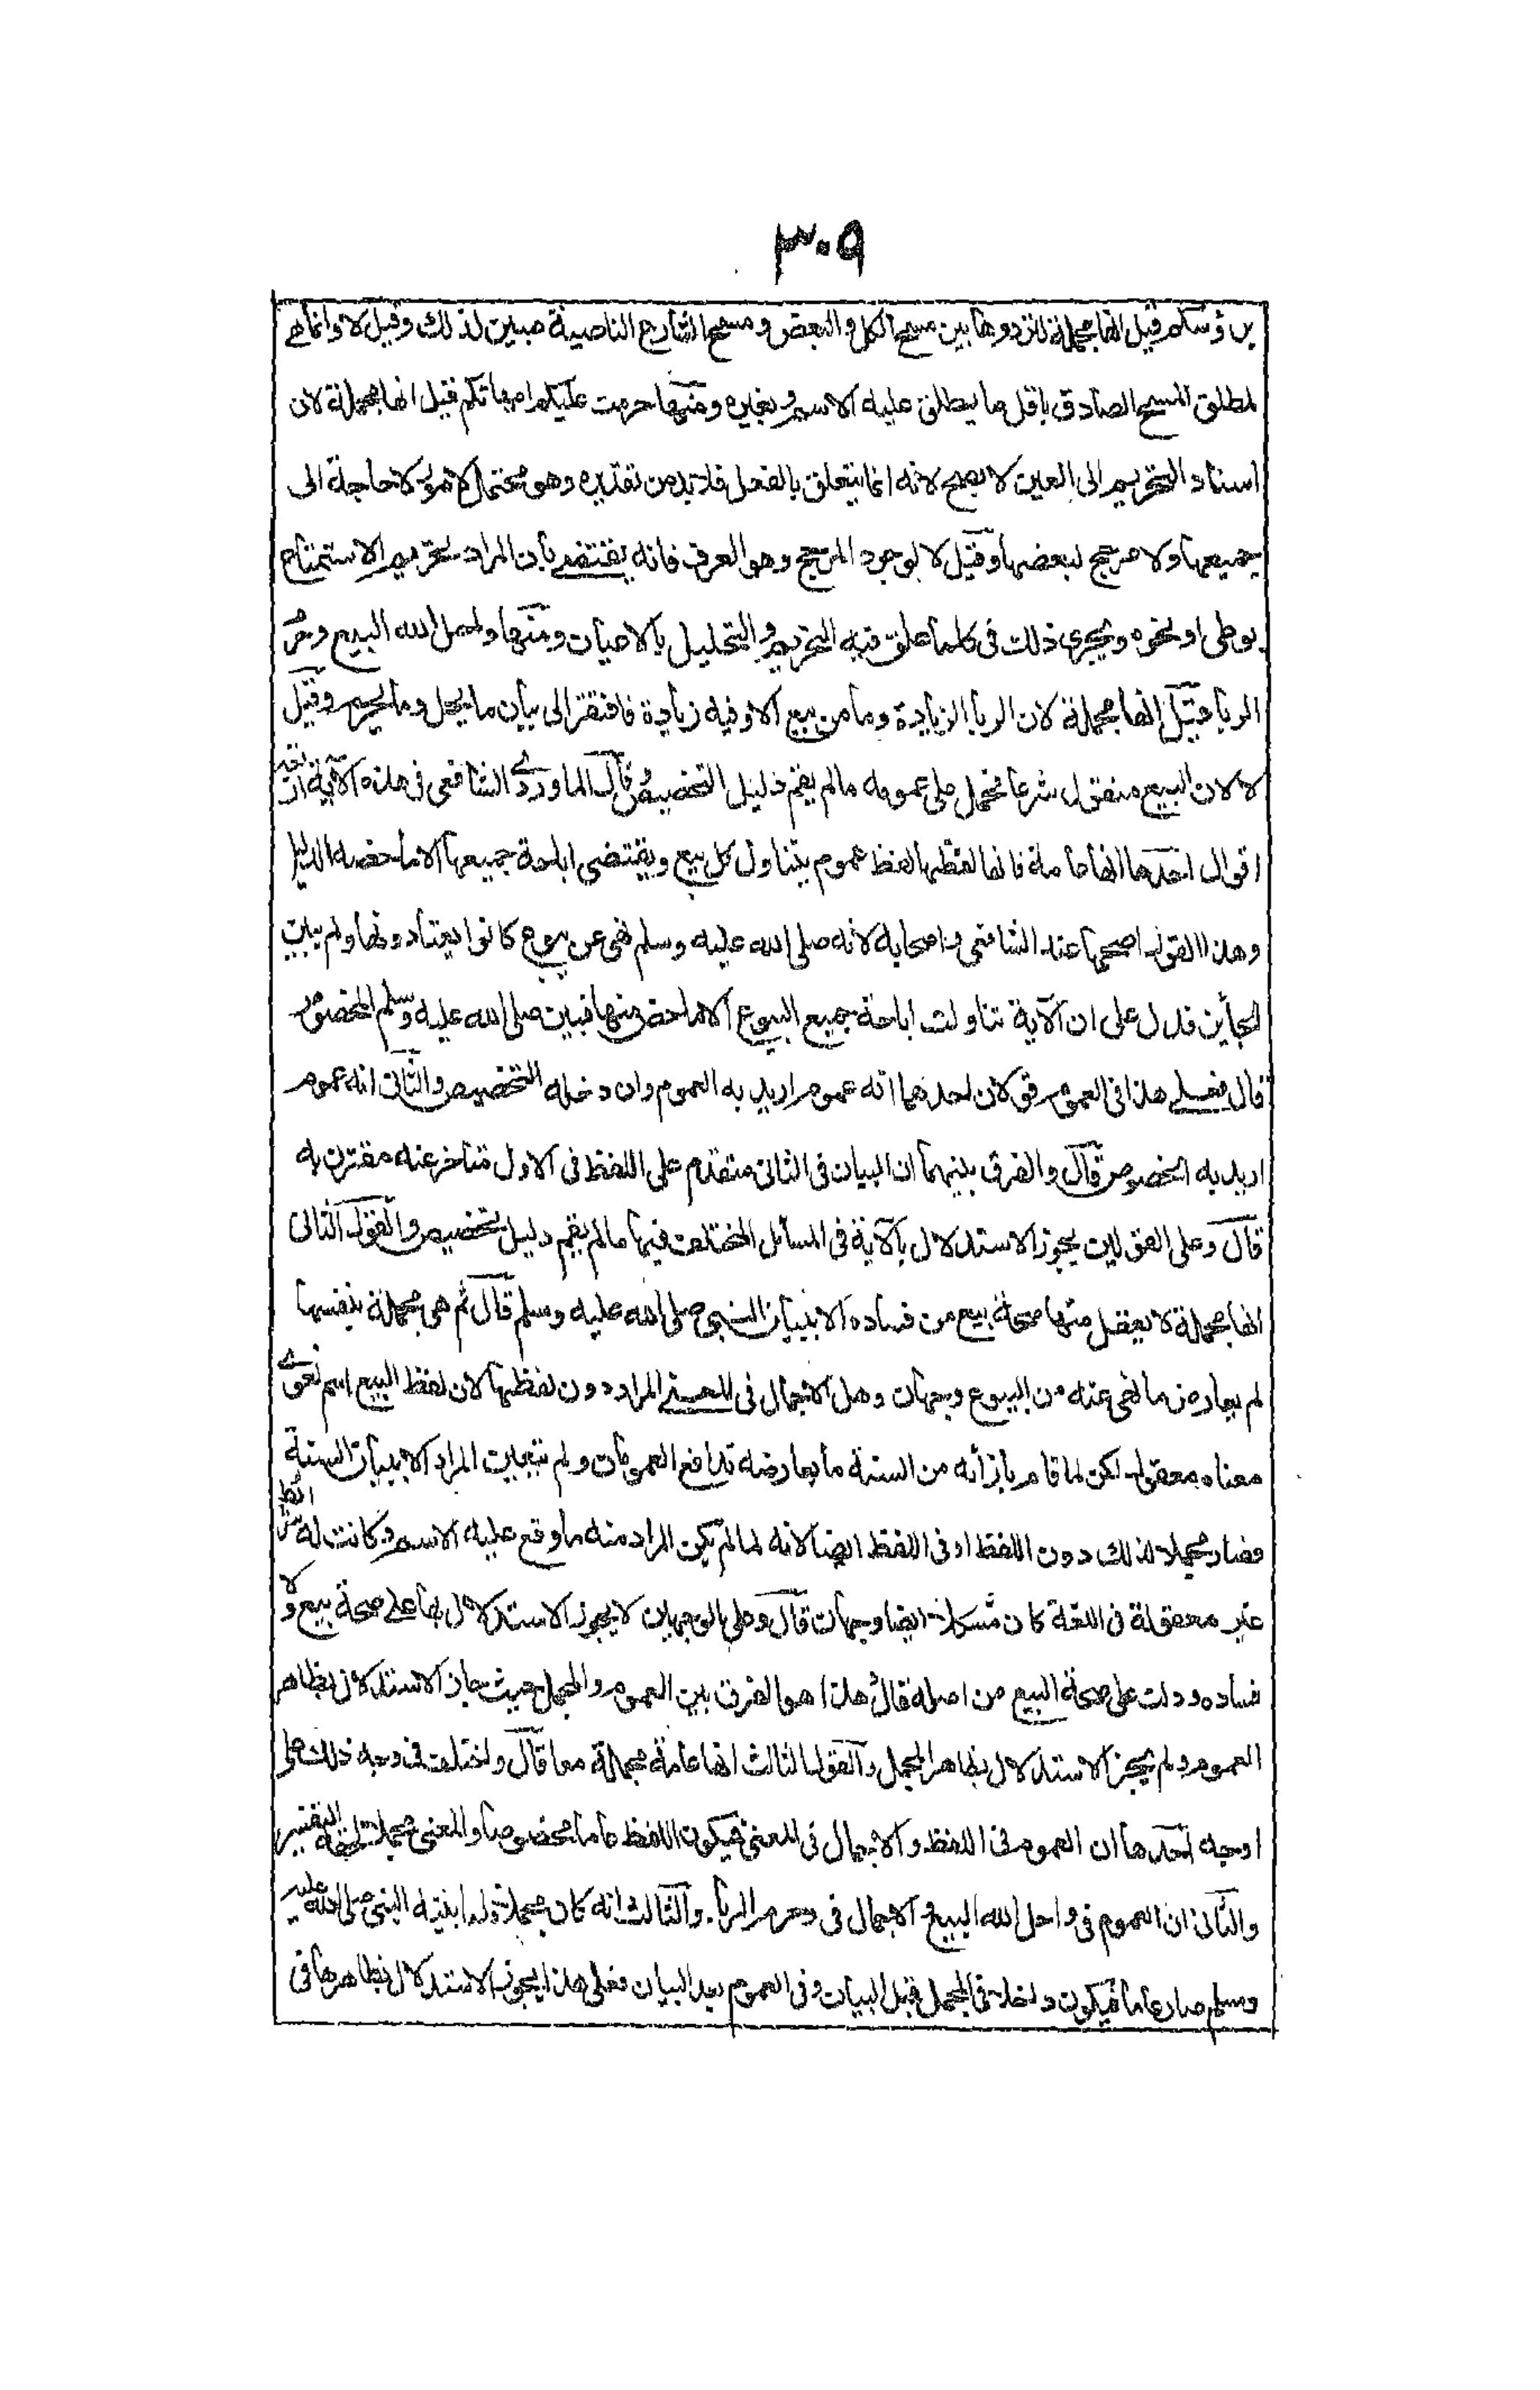 ٣٠٩
برؤسكم قيل انها مجملة لترددها بين مسح الكل والبعض ومسح الشارع الناصية مبين لذلك وقيل لا وانما هى
لمطلق المسح الصادق باقل ما يطلق عليه الاسم وبغيره ومنها حرمت عليكم امهاتكم قيل انها مجملة لان
اسناد التحريم الى العين لا يصح لانه انما يتعلق بالفعل فلا بد من تقديره وهو محتمل لامور لا حاجة الى
جميعها ولا مرجح لبعضها وقيل لا لوجود المرجح وهو العرف فانه يقتضى بان المراد تحريم الاستمتاع
بوطى او نحوه ويجرى ذلك فى كلما علق فيه التحريم والتحليل بالاعيان ومنها واحل الله البيع وحرم
الربا قيل انها مجملة لان الربا الزيادة وما من بيع الا وفيه زيادة فافتقر الى بيان ما يحل وما يحرم وقيل
لا لان البيع منقول شرعا فحمل على عمومه ما لم يقم دليل التخصيص وقال الماوردى الشافعى فى هذه الآية اربعة
اقوال احدها انها عامة فانها لفظها لفظ عموم يتناول كل بيع ويقتضى اباحة جميعها الا ما خصه الدليل
وهذا القول اصحها عند الشافعى واصحابه لانه صلى الله عليه وسلم نهى عن بيوع كانوا يعتادونها ولم يبين
الجائز فدل على ان الآية تناولت اباحة جميع البيوع الا ما خص منها فبين صلى الله عليه وسلم المخصوص
قال فعلى هذا فى العموم قولان احدهما انه عموم اريد به العموم وان دخله التخصيص والثانى انه عموم
اريد به الخصوص قال والفرق بينهما ان البيان فى الثانى متقدم على اللفظ فى الاول متاخر عنه مقترن به
قال وعلى القولين يجوز الاستدلال بالآية فى المسائل المختلف فيها ما لم يقم دليل تخصيص والقول الثانى
انها مجملة لا يعقل منها صحة بيع من فساده الا ببيان النبى صلى الله عليه وسلم قال ثم هى مجملة بنفسها
لم بعارض ما نهى عنه من البيوع وجهان وهل الاجمال فى المعنى المراد دون لفظها لان لفظ البيع اسم لغوى
معناه معقول لكن لما قام بازائه من السنة ما يعارضه تدافع العمومان ولم يتعين المراد الا ببيان السنة
فصار مجملا لذلك دون اللفظ او فى اللفظ ايضا لانه لما لم يكن المراد منه ما وقع عليه الاسم وكانت له شرائط
غير معقولة فى اللغة كان مشكلا ايضا وجهان قال وعلى الوجهين لا يجوز الاستدلال بها على صحة بيع ولا
فساده ودلت على صحة البيع من اصله قال هذا هو الفرق بين العموم والمجمل حيث جاز الاستدلال بظاهر
العموم ولم يجز الاستدلال بظاهر المجمل والقول الثالث انها عامة مجملة معا قال واختلف فى وجه ذلك على
اوجه احدها ان العموم فى اللفظ والاجمال فى المعنى فيكون اللفظ عاما مخصوصا والمعنى مجملا لحقه التفسير
والثانى ان العموم فى واحل الله البيع والاجمال فى وحرم الربا. والثالث انه كان مجملا ولما بينه النبى صلى الله عليه
وسلم صار عاما فيكون داخلا فى المجمل قبل البيان وفى العموم بعد البيان فعلى هذا يجوز الاستدلال بظاهرها فى